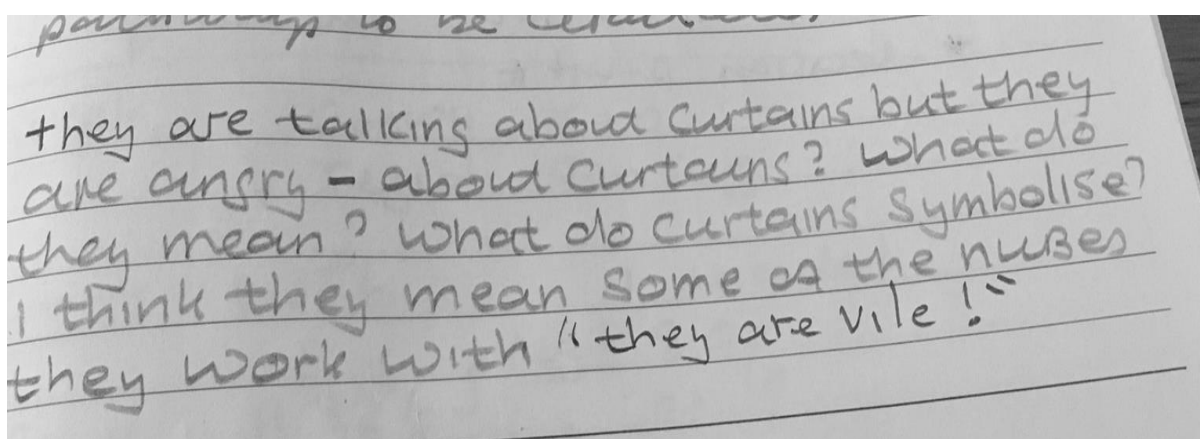 to be
they are talking about curtains but they
are angry - about curtains? What do
they mean? What do curtains symbolise?
I think they mean some of the nurses
they work with "they are vile!"